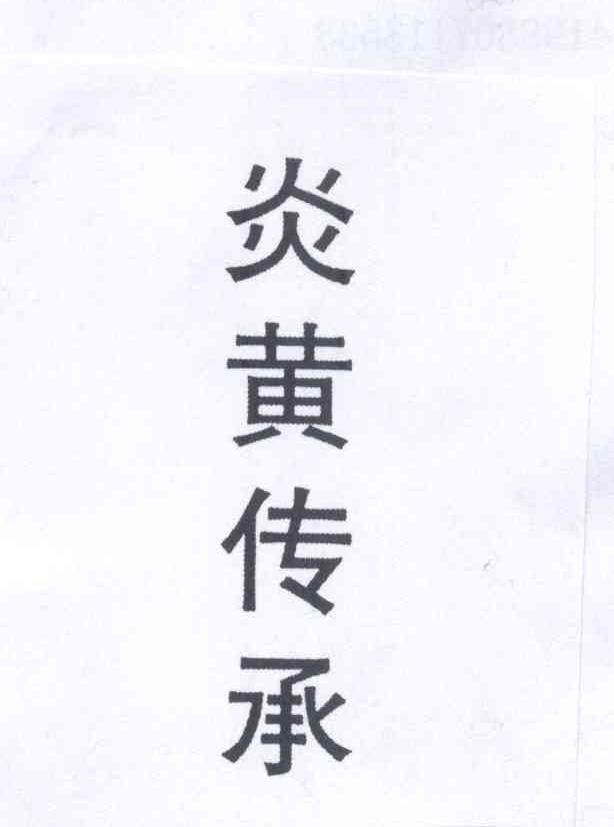 炎黄传承